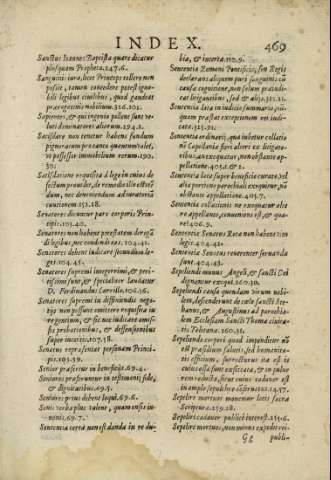 INDEX.
469
Sanctus Ioannes Baptista quare dicatur
plusquam Propheta. 247.6.
Sanguinis iura, licet Princeps tollere non
possit, tamen concedere potest igno-
bili legibus ciuilibus, quod gaudeat
prærogatiuis nobilium. 326.101.
Sapientes, & qui ingenio pollent sunt ve-
luti dominatores aliorum. 194.2.
Satisdare non tenetur habens fundum
pignoratum pro tanta quantum valet,
vt possessor immobilium rerum. 190.
Satisdatione requisita à lege in cuius de-
fectum prouidet, de remissilis est tradé-
dum, nec deueniendum ad iuratoriã
cautionem. 151.18.
Senatores dicuntur pars corporis Prin-
cipis. 103.40.
Senatores non habent potestatem deregã
di legibus, nec condendi eas. 104.42.
Senatores debent iudicare secundùm le-
ges. 104.45.
Senatores supremi integerrimi, & peri-
tissimi sunt, & specialiter laudatur
D. Ferdinandus Carrillo. 106.56.
Senatores supremi in difficiendis nego-
tijs non possunt omittere requisita iu-
re gentium, & sic nec iudicare omis-
sis probationibus, & deffensionibus
super iniectis. 107.58.
Senatus repræsentat personam Princi-
pis. 103.39.
Senior præfertur in beneficijs. 69.4.
Seniores præferuntur in testimonij fide,
& dignitatibus. 69.5.
Seniores prius debent loqui. 69.6.
Senis verba plus valent, quam ensis iu-
uenis. 69.7.
Sententia certa non est danda in re du-
bia, & incerta. 112.9.
Sententia Romani Pontificis, seu Regis
declarans aliquem puri sanguinis cũ
causa cognitione, non solum præiudi-
cat litigantibus, sed & alijs. 321.21.
Sententia lata in iudicio summario, nũ-
quam præstat exceptionem rei iudi-
catæ. 325.91.
Sententia ordinarij, qua iubetur collatio
nẽ Capellaniæ fieri alteri ex litigato-
ribus, aut exequatur, non obstante ap-
pellatione. 405.1. & 2.
Sententia lata super beneficio curato, vel
alio pertinente parochiali exequitur, nõ
obstante appellatione. 405.7.
Sententia collationis ne exequatur alte-
ro appellante, conuenientius est, & quare?
406.9.
Sententia Senatus Rotæ non habetur in
legis. 404.42.
Sententiæ Senatus reuerenter seruandæ
sunt. 404.43.
Sepeliendi munus Angeli, & sancti Dei
dignantur exequi. 160.30.
Sepeliendi causa quendam virum nobi-
lem, descendentem de cœlo sancti Ste-
phanus, & Augustinus ad perochiam
Ecclesiam sancti Thomæ ciuita-
tis Toletanæ. 160.31.
Sepeliendo corpori quod impenditur nõ
est præsidium salutis, sed humanita-
tis officium, surrecturus ita est is
cuius ossa sunt exsiccata, & in pulue-
rem redacta, sicut cuius cadauer est
in amplo sepulchro conseruatur. 14.57.
Sepelire mortuos monemur locis sacræ
Scripturæ. 259.28.
Sepelire cadauer publici interest. 255.6.
Sepelire mortuos, non minus expedit rei-
publi-